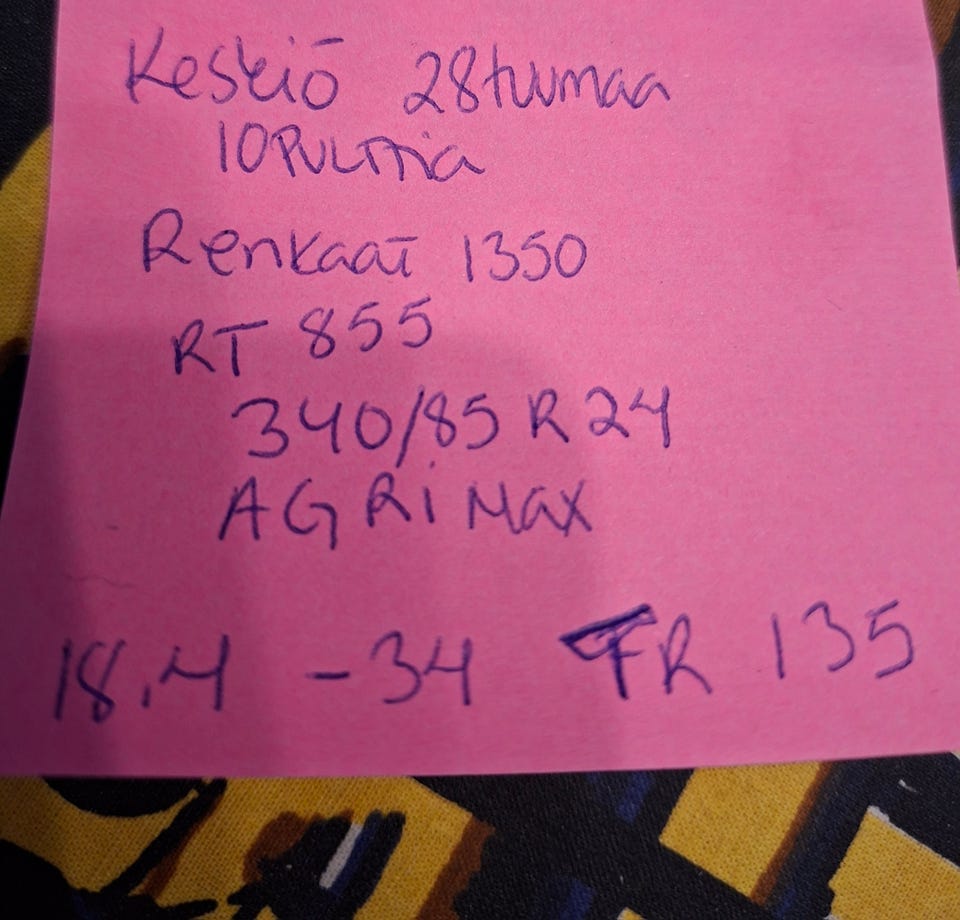 Keskiö 28tuumaa
10PULTTia
Renkaat 1350
RT 855
340/85 R24
AGRiMax
18.4 - 34 TR 135